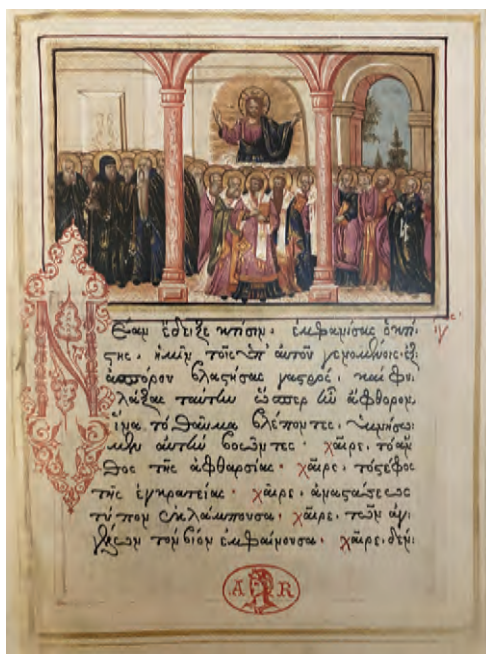 Νέαν ἔδειξε κτίσιν· ἐμφανίσας ὁ κτί-
στης· ἡμῖν τοῖς ὑπ' αὐτοῦ γενομένοις· ἐξ
ἀσπόρου βλαστήσας γαστρός· καὶ φυ-
λάξας ταύτην ὥσπερ ἦν ἄφθορον.
ἵνα τὸ θαῦμα βλέποντες· ὑμνήσω-
μεν αὐτὴν βοῶντες· χαῖρε, τὸ ἄν-
θος τῆς ἀφθαρσίας· χαῖρε, τὸ στέφος
τῆς ἐγκρατείας· χαῖρε, ἀναστάσεως
τύπον ἐκλάμπουσα· χαῖρε, τῶν ἀγ-
γέλων τὸν βίον ἐμφαίνουσα· χαῖρε, δέν-
A R